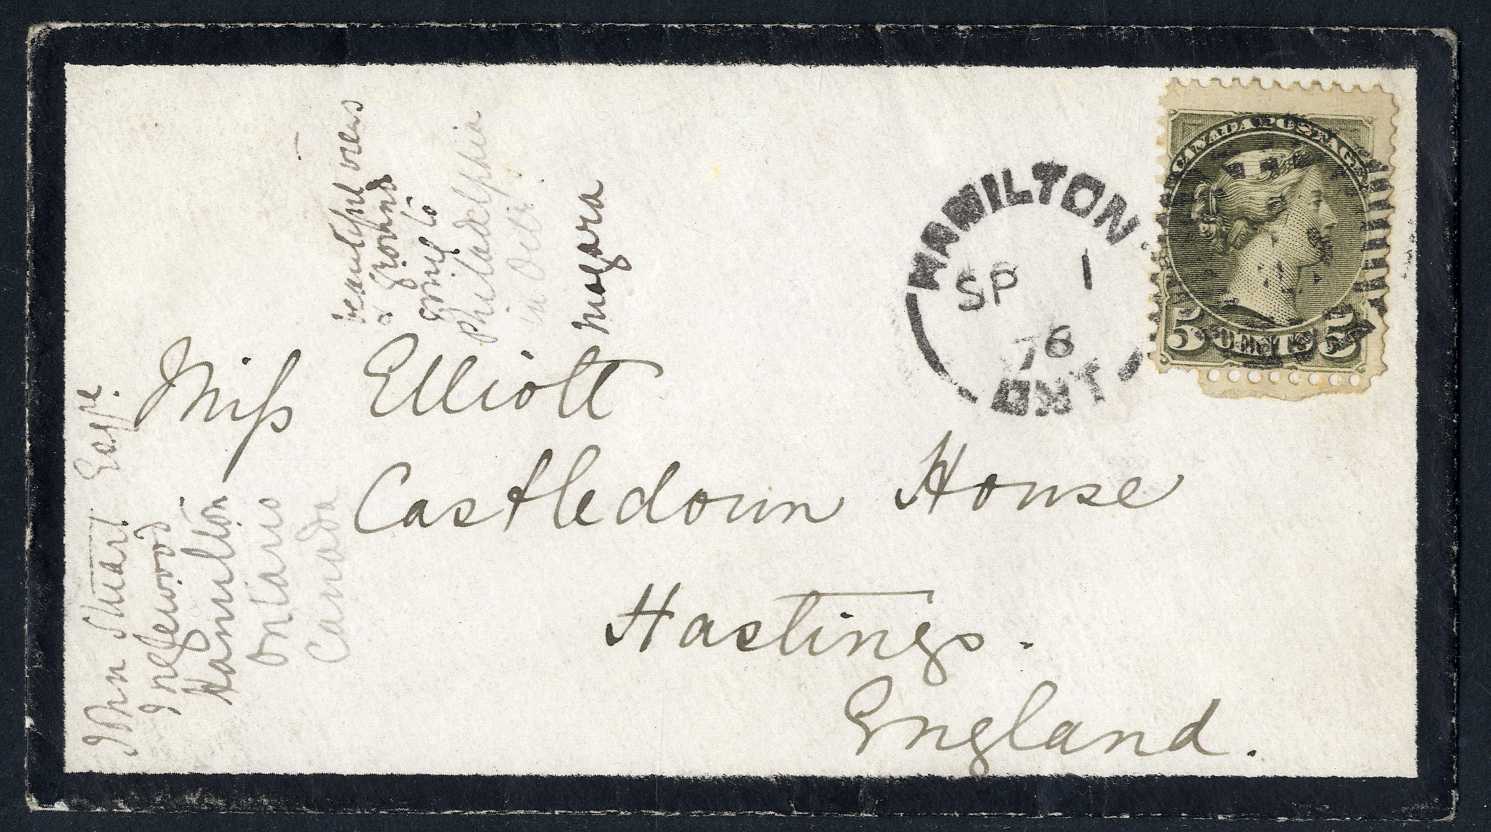 beautiful views
& grounds
going to
Philadelphia
in Octr
niagara
CANADA POSTAGE
5 CENTS 5
HAMILTON
SP 1
76
ONT
Miss Elliott
Castledown House
Hastings.
England.
John Stuart Esqre.
Inglewood
Hamilton
Ontario
Canada